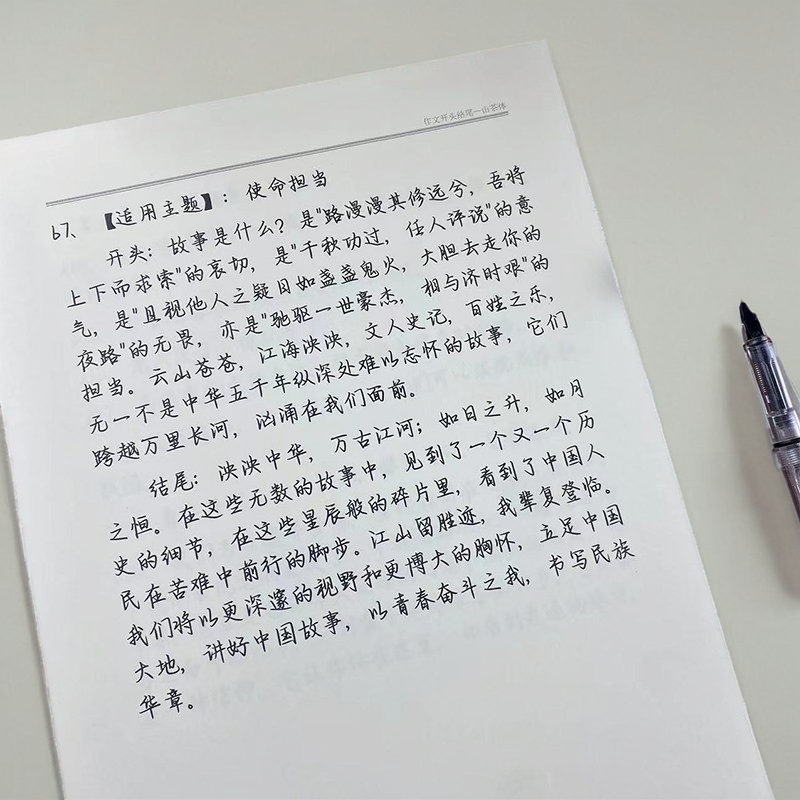 作文开头结尾一山茶体
67、【适用主题】：使命担当
开头：故事是什么？是"路漫漫其修远兮，吾将
上下而求索"的哀切，是"千秋功过，任人评说"的意
气，是"且视他人之疑目如盏盏鬼火，大胆去走你的
夜路"的无畏，亦是"驰驱一世豪杰，相与济时艰"的
担当。云山苍苍，江海泱泱，文人史记，百姓之乐，
无一不是中华五千年纵深处难以忘怀的故事，它们
跨越万里长河，汹涌在我们面前。
结尾：泱泱中华，万古江河；如日之升，如月
之恒。在这些无数的故事中，见到了一个又一个历
史的细节，在这些星辰般的碎片里，看到了中国人
民在苦难中前行的脚步。江山留胜迹，我辈复登临。
我们将以更深邃的视野和更博大的胸怀，立足中国
大地，讲好中国故事，以青春奋斗之我，书写民族
华章。